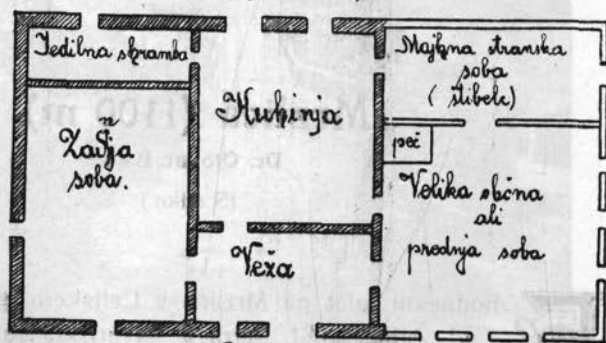 Jedilna shramba
Zadnja
soba.
Kuhinja
Veža
Majhna stranska
soba
(štibelc)
peč
Velika občna
ali
prednja soba